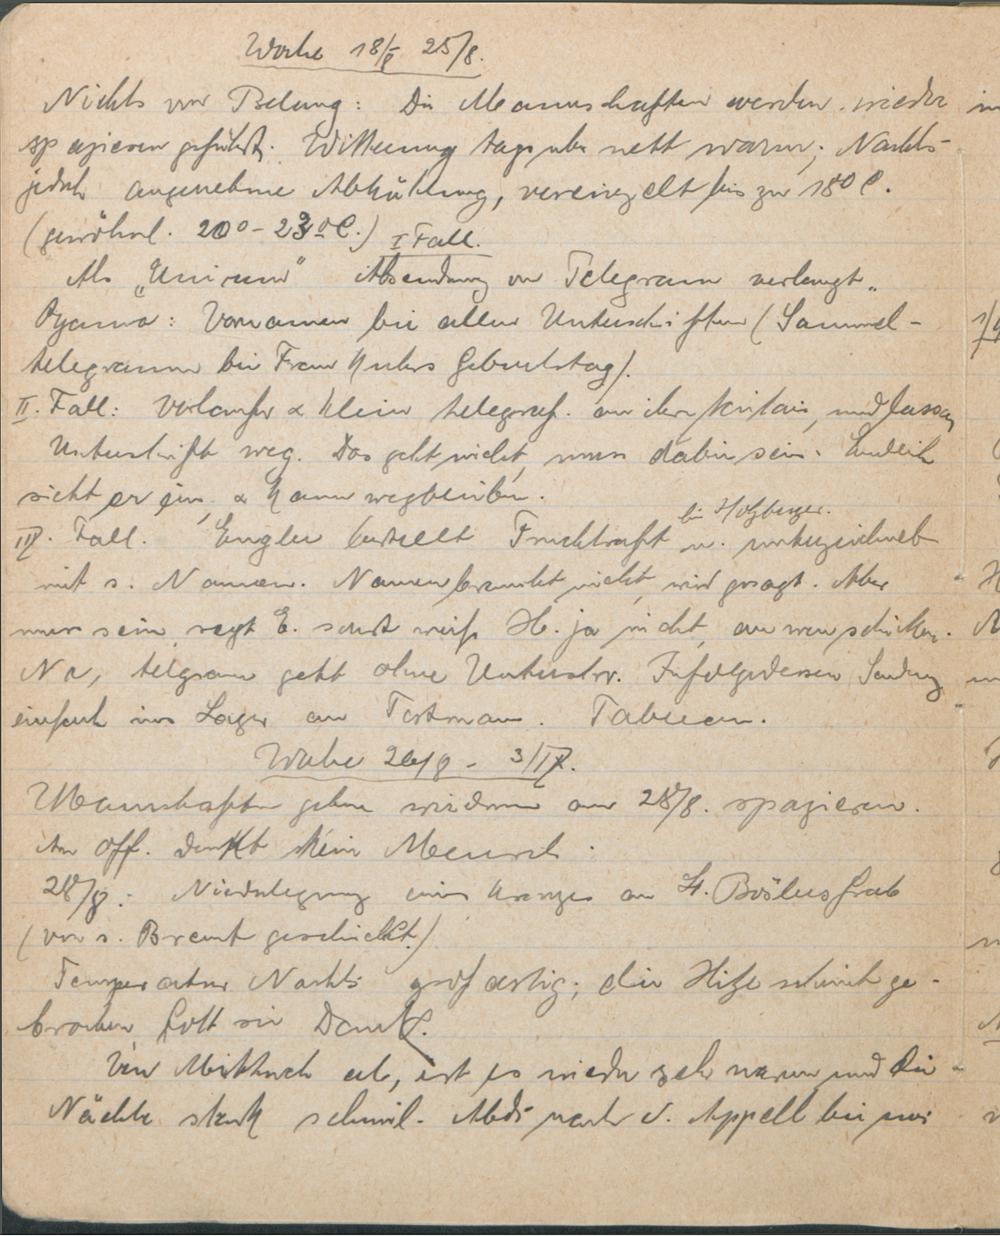 Woche 18/8 25/8.
Nichts von Belang: Die Mannschaften werden wieder
spazieren geführt. Witterung tagsüber nett warm; Nachts
jedoch angenehme Abkühlung, vereinzelt bis zu 18° C.
(gewöhnl. 20° - 23° C.) I Fall.
Als „Unicum" Absendung von Telegram verlangt
Vornamen bei allen Unterschriften (Sammel-
telegramm bei Frau Geburtstag).
II. Fall: & Klein telegraf. an und lassen
Unterschrift weg. Das geht nicht, muss dabei sein. Endlich
sieht er ein, & kann wegbleiben.
bei Holzberger.
III. Fall. Engler bestellt Fruchtsaft u. unterzeichnet
mit s. Namen. Namen braucht nicht, wird gesagt. Aber
muss sein, sagt E. sonst weiß H. ja nicht, an wen schicken.
Na, telgram geht ohne Unterschr. Infolgedessen Sendung
einfach ins Lager an Tableau.
Woche 26/8 - 3/IX.
Mannschaften gehen wiederum am 28/8. spazieren.
An Off. denkt kein Mensch.
28/8. Niederlegung eines Kranzes am Grab
(von s. Braut geschickt.)
Temperatur Nachts großartig; die Hitze scheint ge-
brochen Gott sei Dank.
Von Mittwoch ab, ist es wieder sehr warm und die
Nächte stark schwül. Abds nach d. Appell bei uns